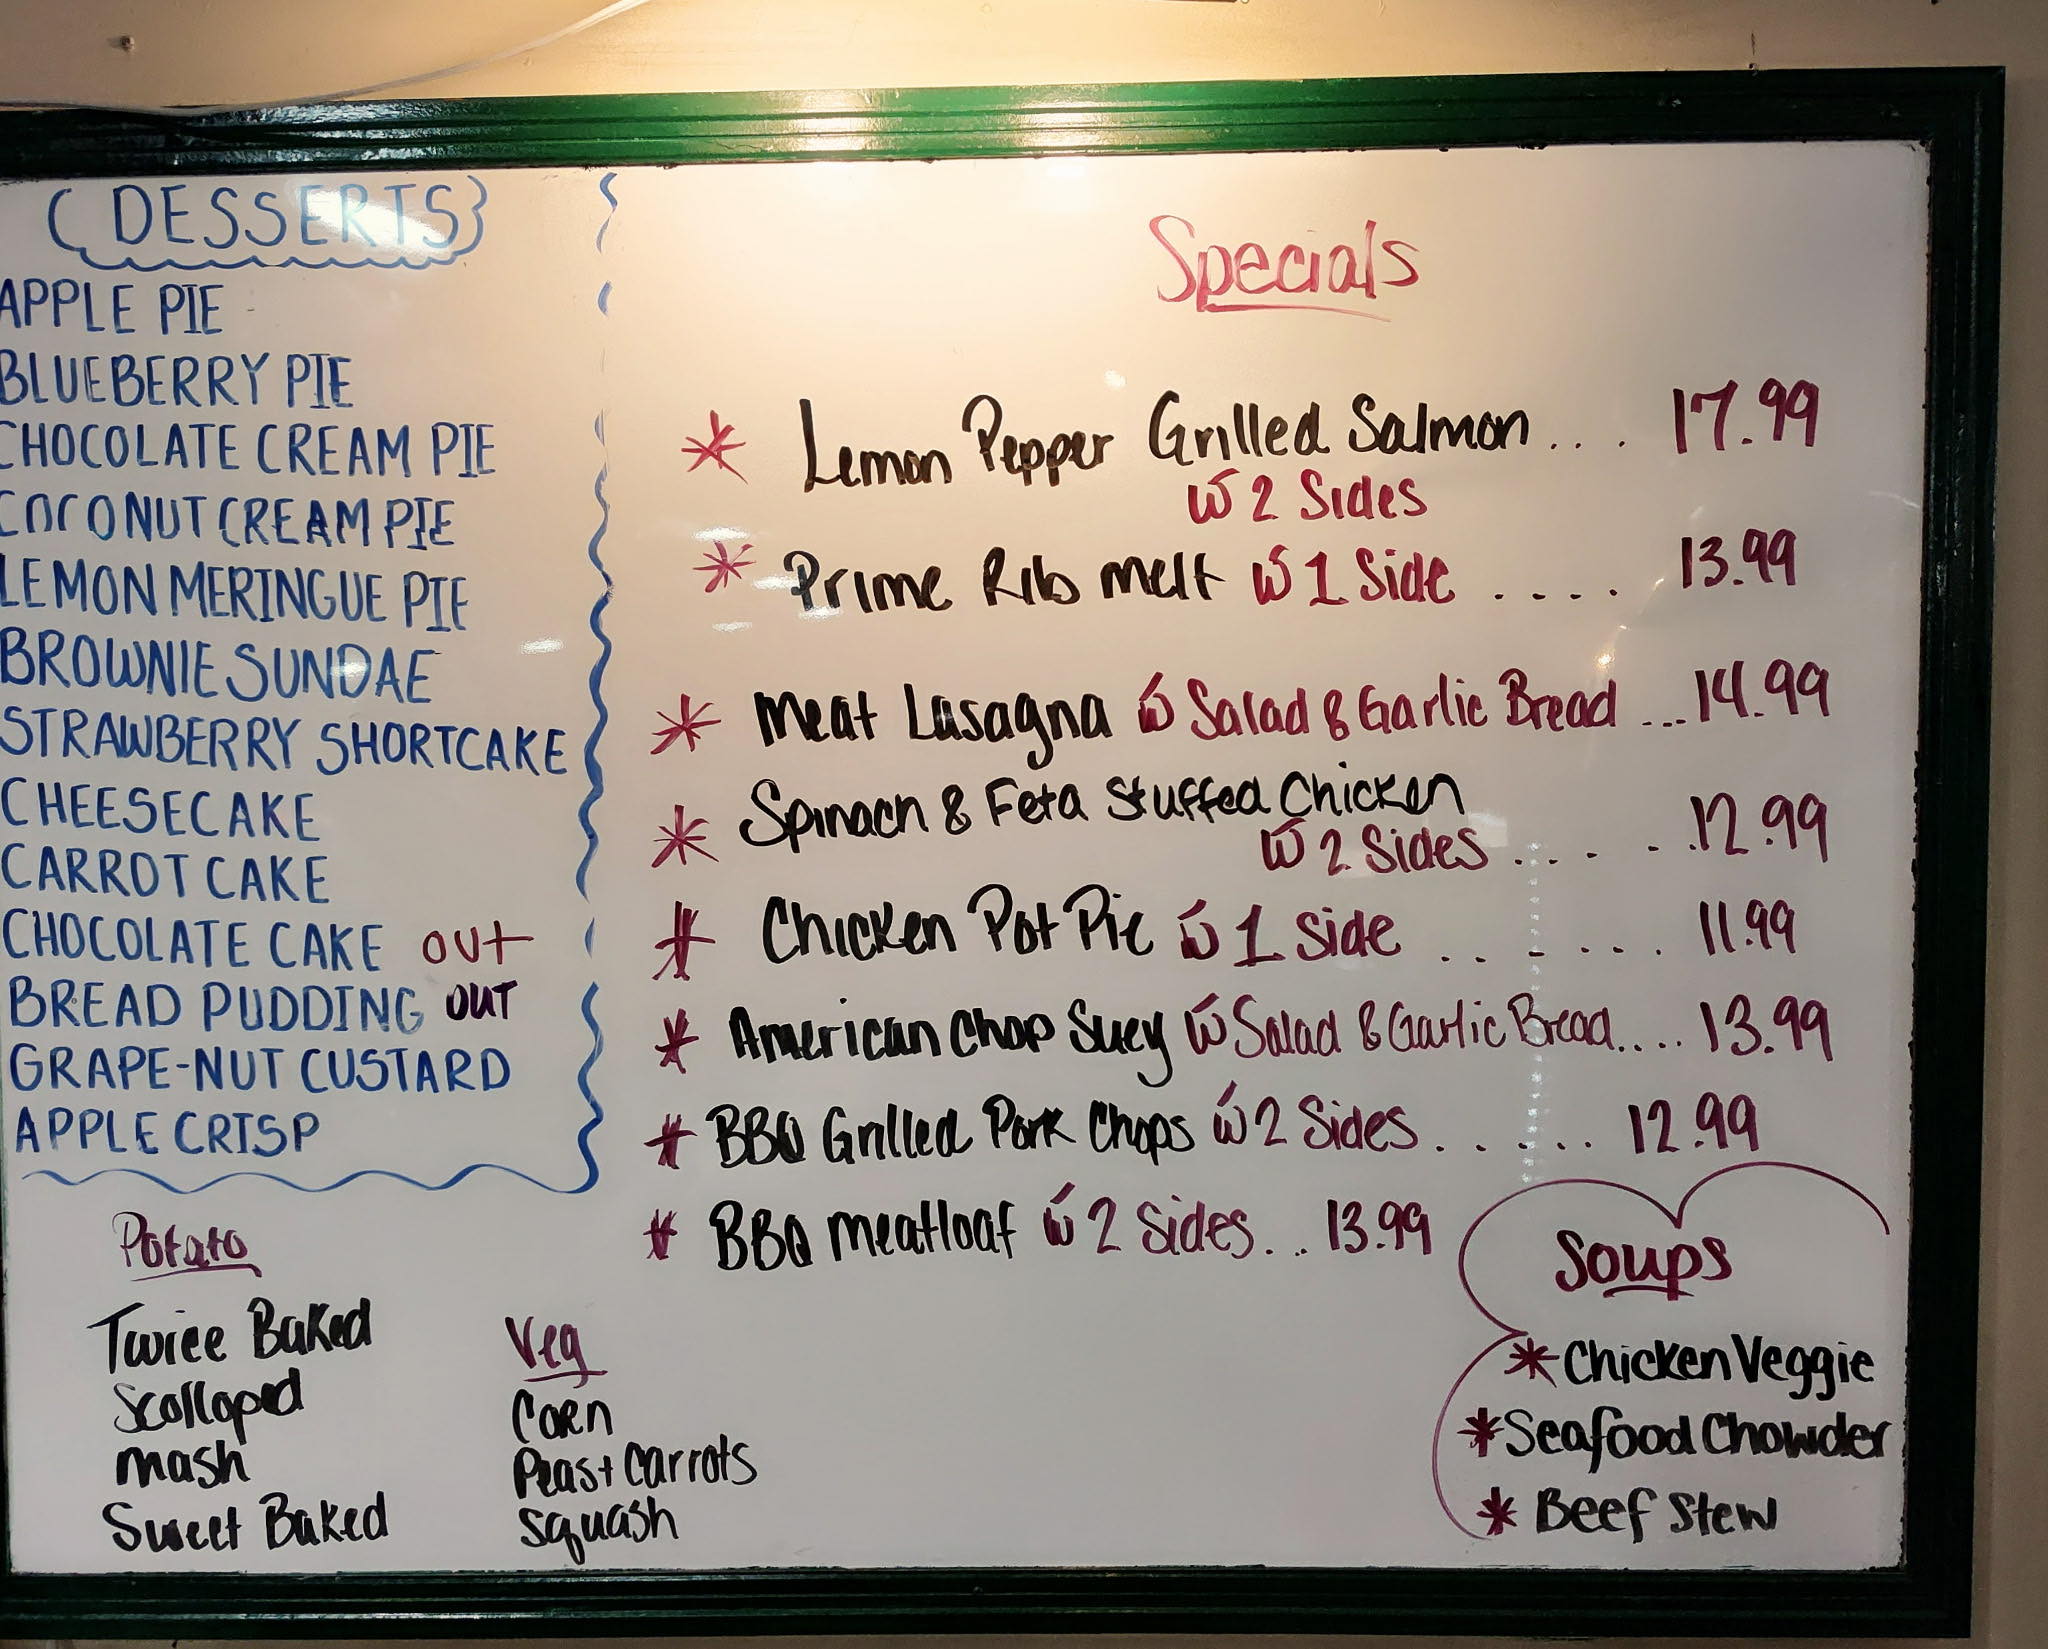 DESSERTS
APPLE PIE
BLUEBERRY PIE
CHOCOLATE CREAM PIE
COCONUT CREAM PIE
LEMON MERINGUE PIE
BROWNIE SUNDAE
STRAWBERRY SHORTCAKE
CHEESECAKE
CARROT CAKE
CHOCOLATE CAKE OUT
BREAD PUDDING OUT
GRAPE-NUT CUSTARD
APPLE CRISP
Potato
Twice Baked
Scolloped
mash
Sweet Baked
Veg
Corn
Peas + Carrots
Squash
Specials
* Lemon Pepper Grilled Salmon.... 17.99
w 2 Sides
* Prime Rib melt w 1 Side .... 13.99
* Meat Lasagna w Salad & Garlic Bread ...14.99
* Spinach & Feta Stuffed Chicken
w 2 Sides ..... 12.99
* Chicken Pot Pie w 1 Side ...... 11.99
* American Chop Suey w Salad & Garlic Bread.... 13.99
* BBQ Grilled Pork Chops w 2 Sides...... 12.99
* BBQ meatloaf w 2 Sides... 13.99
Soups
* Chicken Veggie
* Seafood Chowder
* Beef Stew